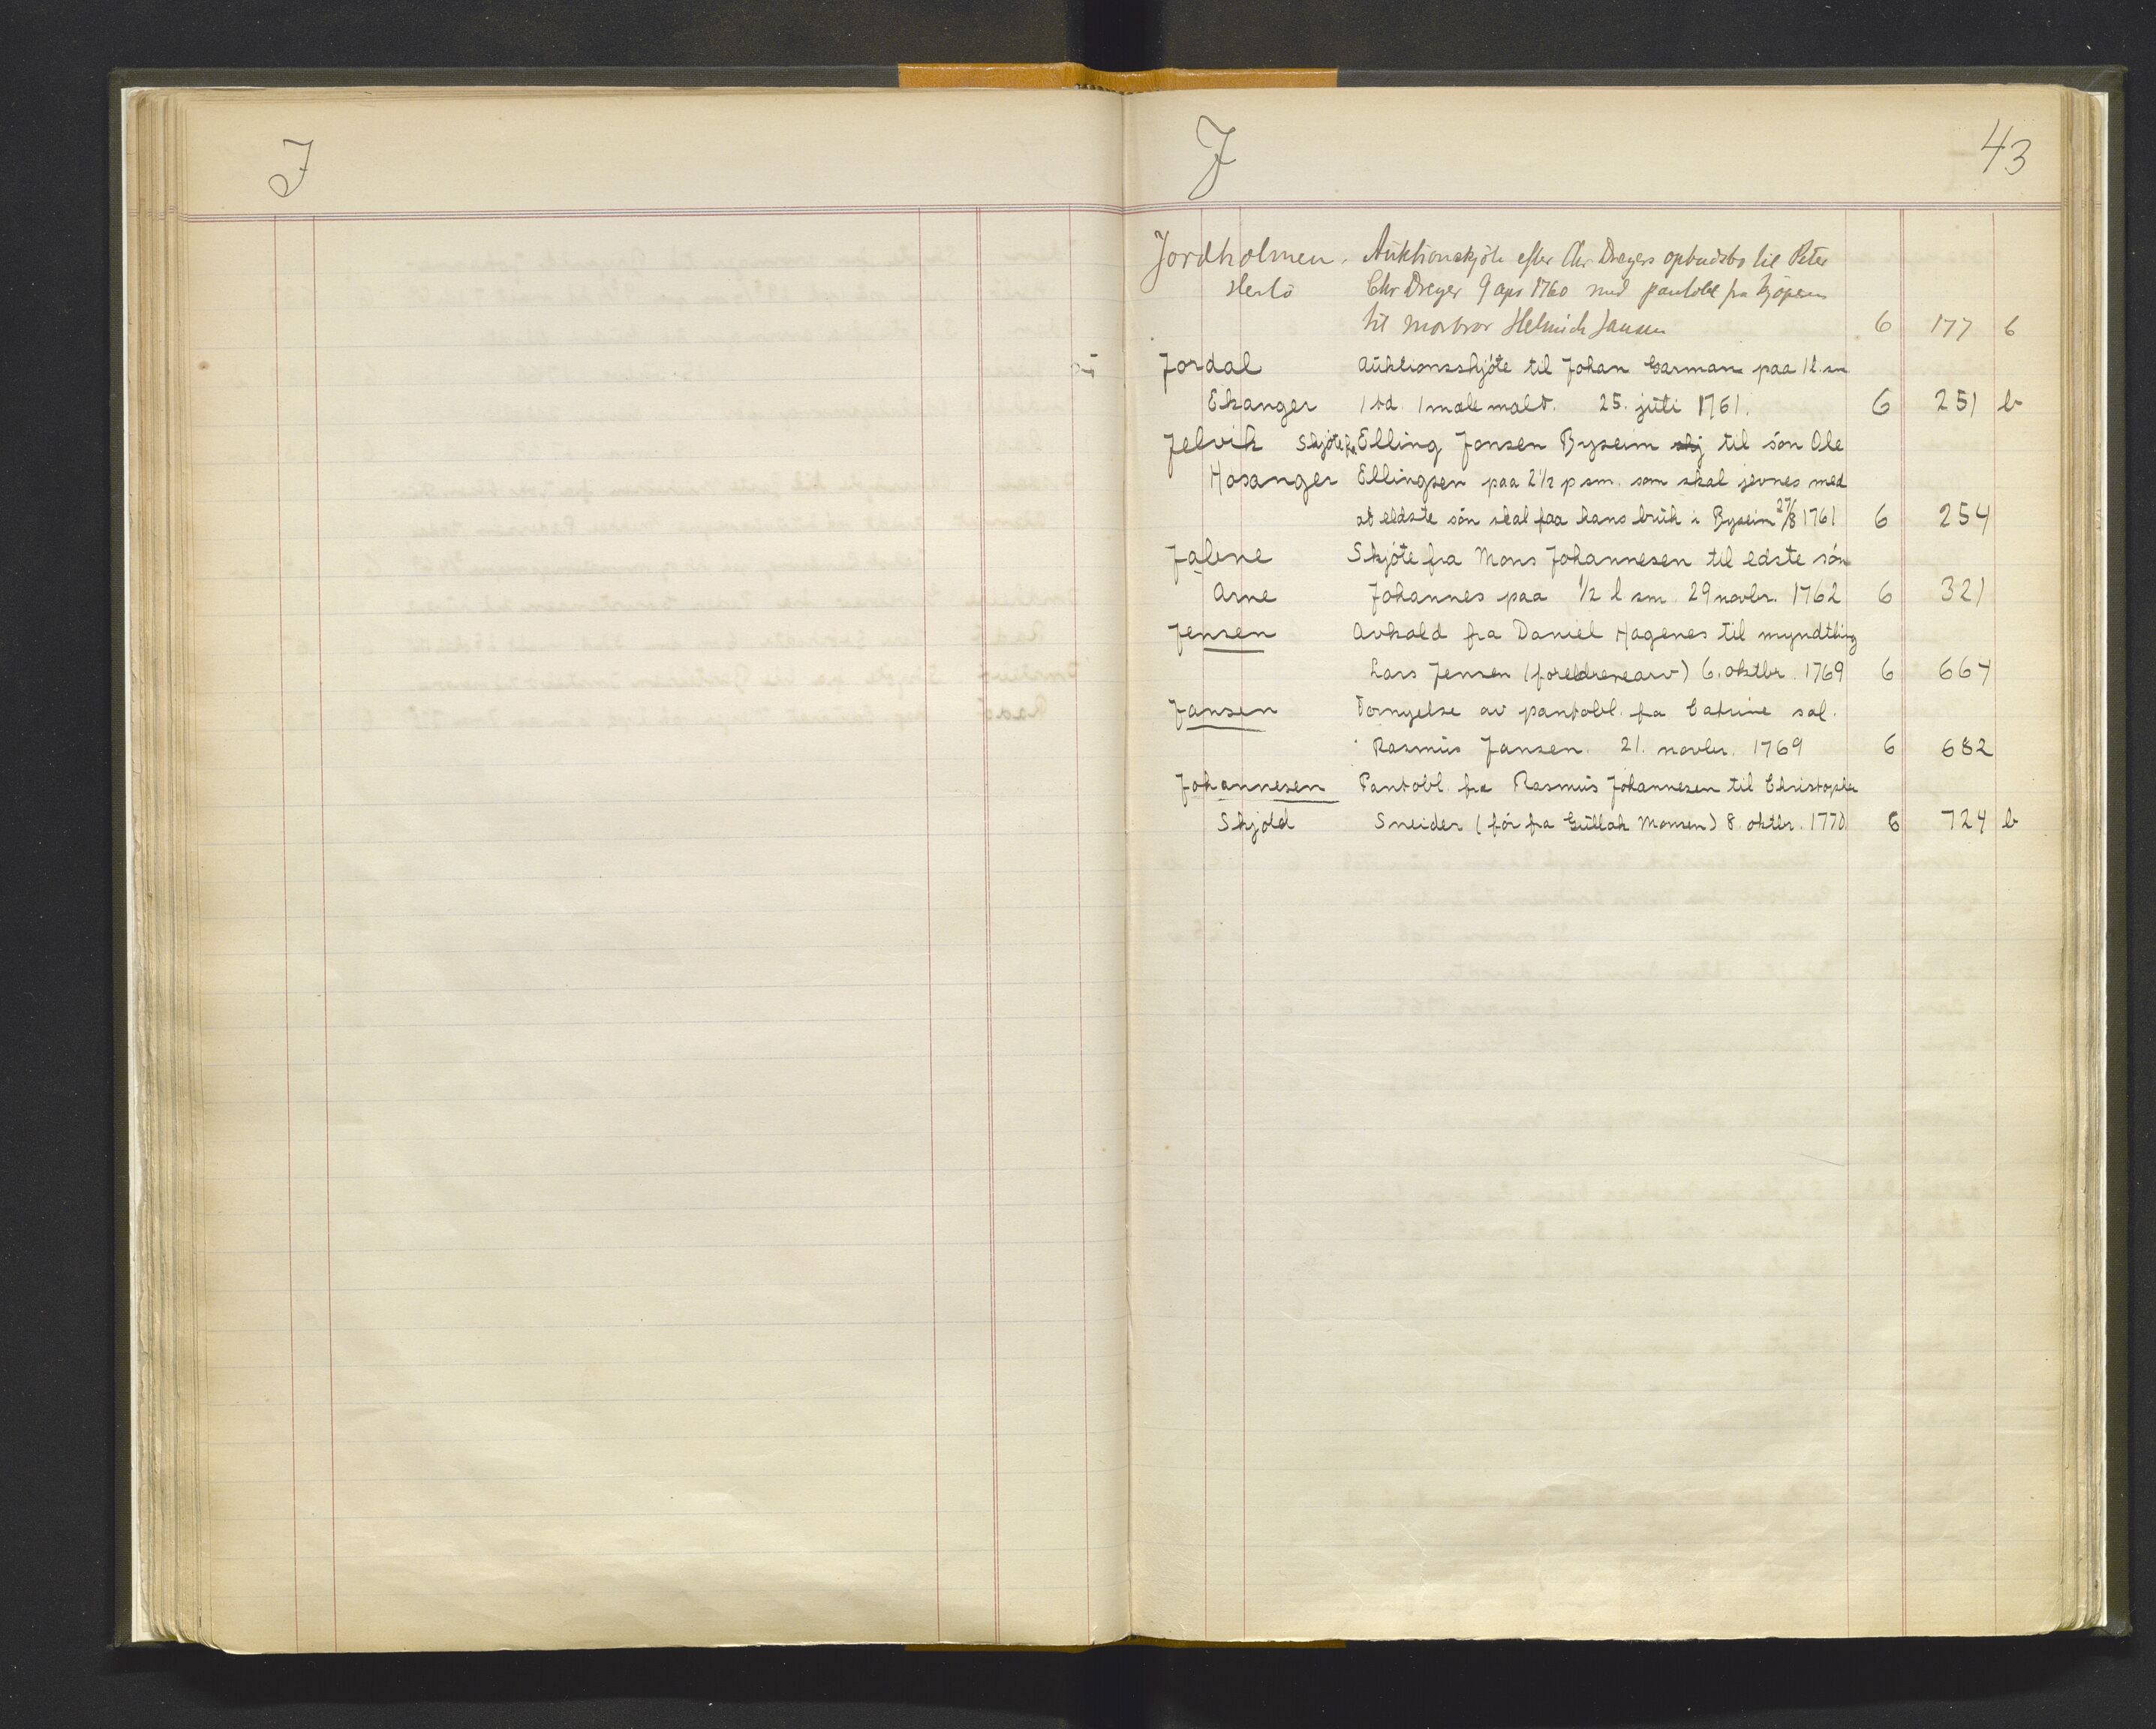 J
J
43
Jordholmen. Auktionskjöte efter Chr Dreyers opbudsbo til Peter
Herlö Chr Dreyer 9 apr 1760 med pantobl fra kjöperen
til morbror Helmich Jansen 6 177 b
Jordal Auktionsskjöte til Johan Garman paa 1 l. sm
Ekanger 1 td. 1 mæle malt. 25. juli 1761. 6 251 b
Jelvik Skjöte fra Elling Jonsen Byseim skj til sön Ole
Hosanger Ellingsen paa 2 1/2 p sm. som skal jevnes med
at eldste sön skal faa hans bruk i Byseim 27/8 1761 6 254
Jalene Skjöte fra Mons Johannesen til eldste sön
Arne Johannes paa 1/2 l sm. 29 novbr. 1762 6 321
Jensen Avkald fra Daniel Hagenes til myndtling
Lars Jensen (foreldrenearv) 6. oktbr. 1769 6 664
Jansen Fornyelse av pantobl. fra Catrine sal.
Rasmus Jansen. 21. novbr. 1769 6 682
Johannesen Pantobl. fra Rasmus Johannesen til Christopher
Skjold Sneider (för fra Gullak Monsen) 8. oktbr. 1770 6 724 b